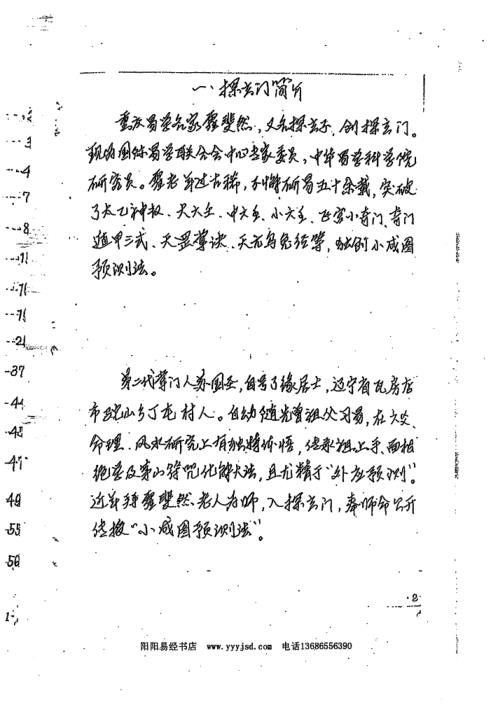 一、探玄门简介
重庆易学名家霍斐然，又名探玄子，创探玄门。
现为国际易学联合会中心专家委员，中华易学科学院
研究员。霍老年过古稀，刻苦研易五十余载，突破
了太乙神数、大六壬、中六壬、小六壬、飞宫小奇门、奇门
遁甲三式、天罡掌诀、天元乌兔经等，独创小成图
预测法。
第二代掌门人苏国圣，自号了缘居士，辽宁省瓦房店
市驼山乡丁屯村人。自幼随先曾祖父习易，在六爻、
命理、风水研究上有独特体悟，传承祖上手、面相
绝学及茅山符咒化解大法，且尤精于“外应预测”。
近年拜霍斐然老人为师，入探玄门，奉师命公开
传授“小成图预测法”。
3
4
7
8
71
71
71
21
37
41
45
47
49
55
56
1
2
阳阳易经书店 www.yyyjsd.com 电话13686556390